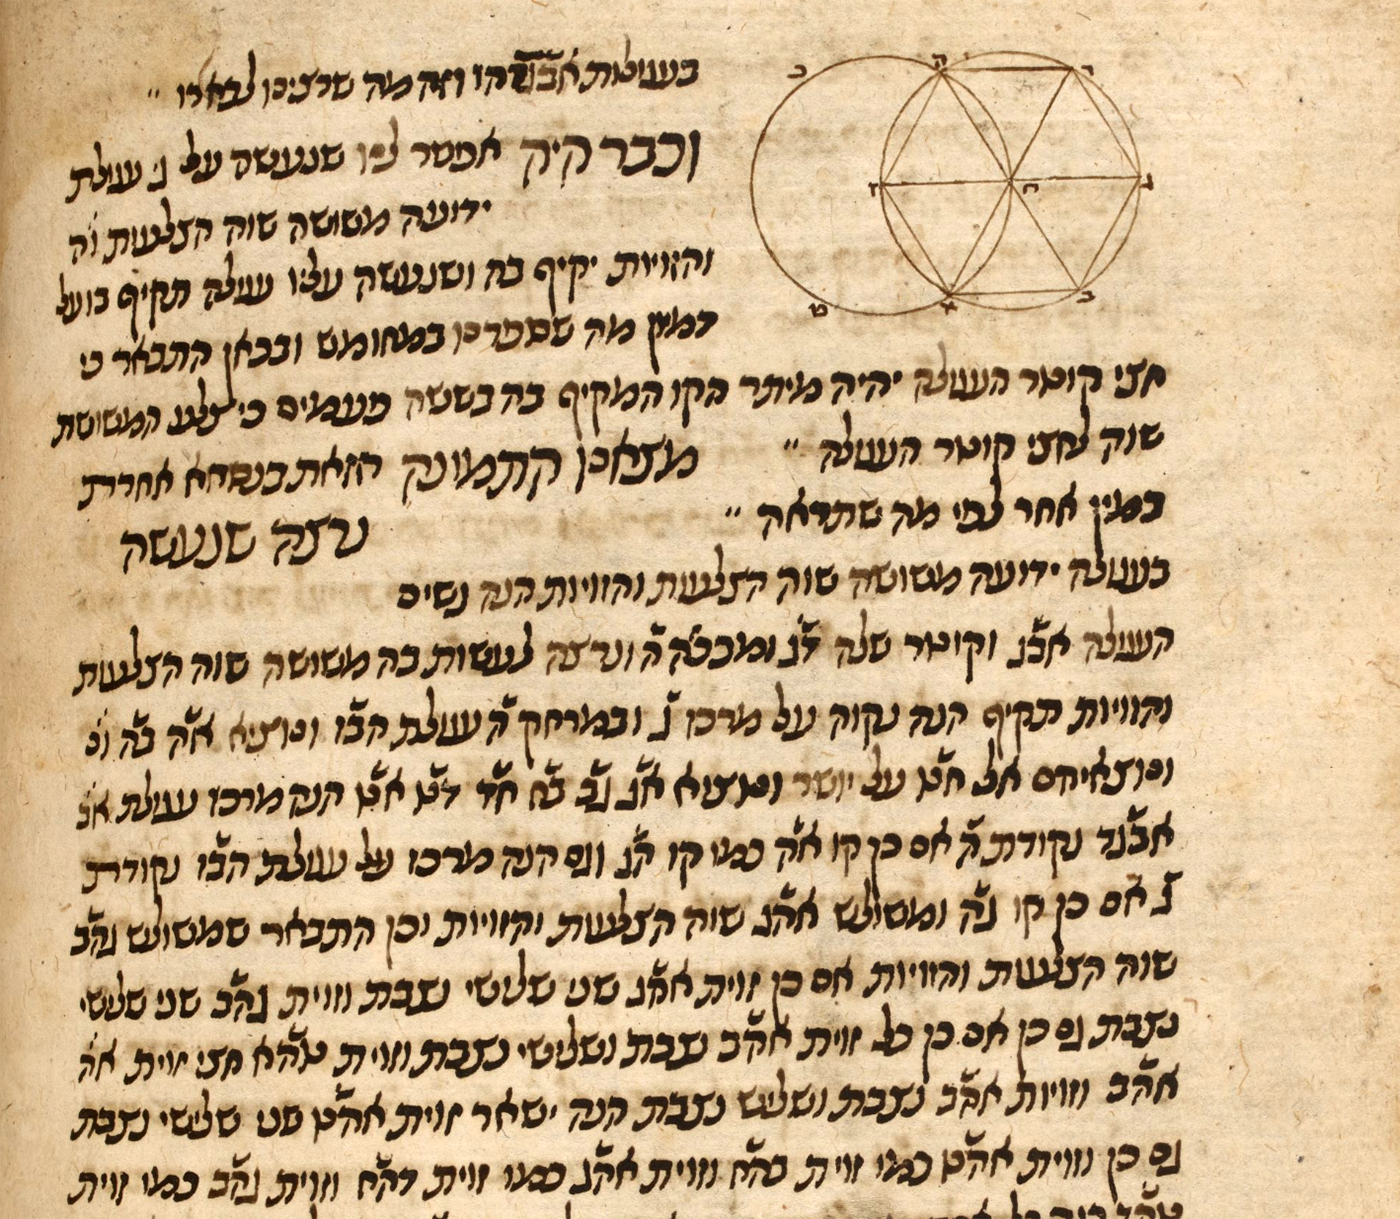 בעגולת אבגדהז וזה מה שרצינו לבארו
וכבר היה אפשר לנו שנעשה על ג׳ עגולת
ידועה משושה שוה הצלעות וה׳
והזויות יקיף בה ושנעשה עליו עגולה תקיף בו על
כמו מה שספרנו במחומש ובכאן התבאר כי
חצי קוטר העגולה יהיה מיתר הקו המקיף בה בששה פעמים כי צלע המשושה
שוה לחצי קוטר העגולה
מצאנו התמונה הזאת בנסחא אחרת
במנין אחר לפי מה שתראה
נרצה שנעשה
בעגולה ידועה משושה שוה הצלעות והזויות הנה נשים
העגולה אבג וקוטר שלה דג ומרכזה ה ונרצה לעשות בה משושה שוה הצלעות
והזויות תקיף הנה נקוה על מרכז ג ובמרחק ה עגולת הבז ונוציא אה בה ונ׳
ונוציאיהם אל חט על יושר ונוציא אג גב בח חד דט אט הנה מרכז עגולת אב׳
אבגד נקודת ה אם כן קו אה כמו קו הג וגם הנה מרכז על עגולת הבז נקודת
ג אם כן קו גה ומשולש אהג שוה הצלעות והזויות וכן התבאר שמשולש גהב
שוה הצלעות והזויות אם כן זוית אהג שני שלישי נצבת וזוית גהב שני שלישי
נצבת גם כן אם כן כל זוית אהב נצבת ושלישי נצבת וזוית טהא חצי זוית אה׳
אהב וזויות אהב נצבת ושליש נצבת הנה ישאר זוית אהט שני שלישי נצבת
גם כן וזוית אהט כמו זוית בהח וזוית אהג כמו זוית דהח וזוית גהב כמו זוית